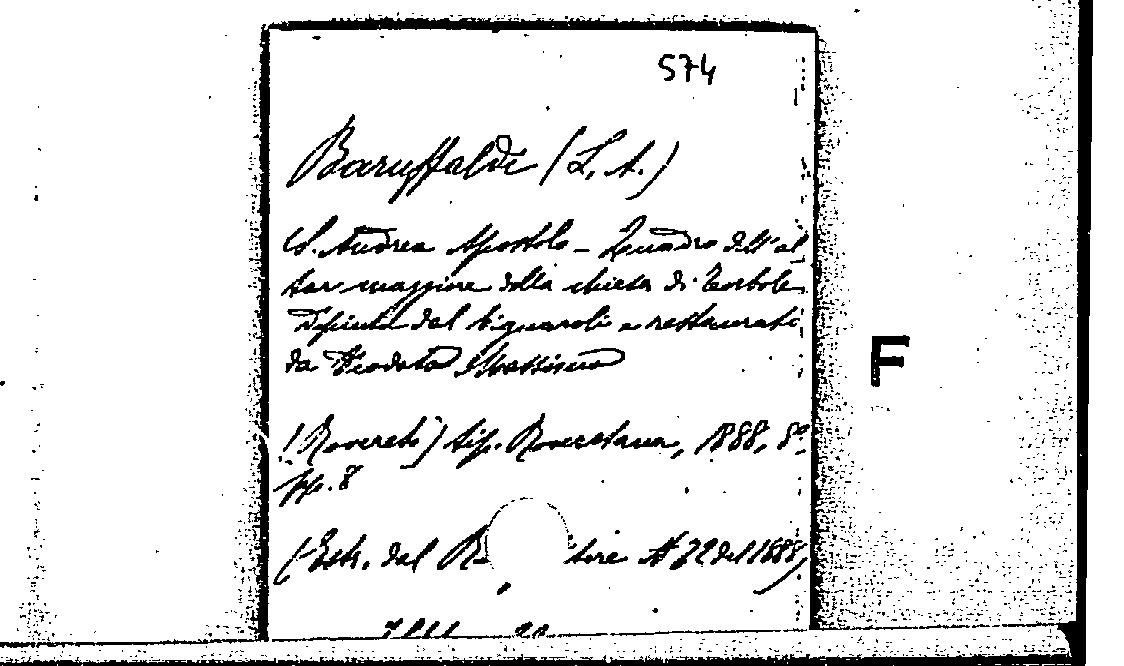 574
Baruffaldi (L. A.)
S. Andrea Apostolo - Quadro dell'al
tar maggiore della chiesa di Torbole
Dipinto dal Lignaroli e restaurato
da Deodato Massimo
[Rovereto] tip. Roveretana, 1888, 8º,
pp. 8
(Estr. dal R tore N 22 del 1888)
F